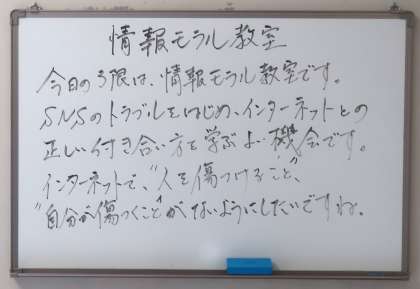 情報モラル教室
今日の3限は、情報モラル教室です。
SNSのトラブルをはじめ、インターネットとの
正しい付き合い方を学ぶよい機会です。
インターネットで、"人を傷つけること"、
"自分が傷つくこと"がないようにしたいですね。